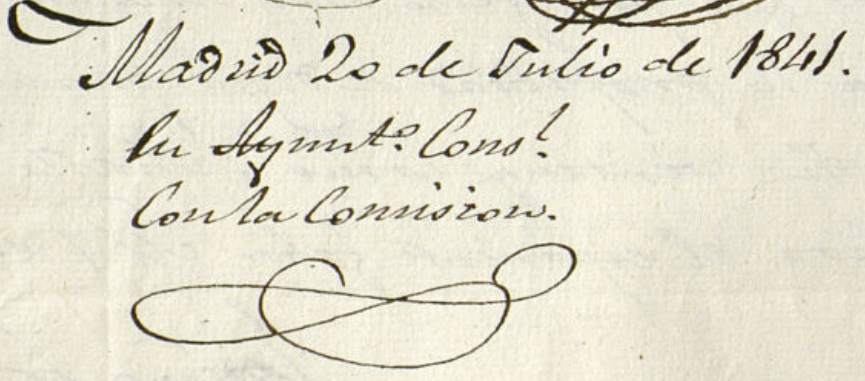 Madrid 20 de Julio de 1841.
En Ayunt.º Cons.l
Con la Comision.